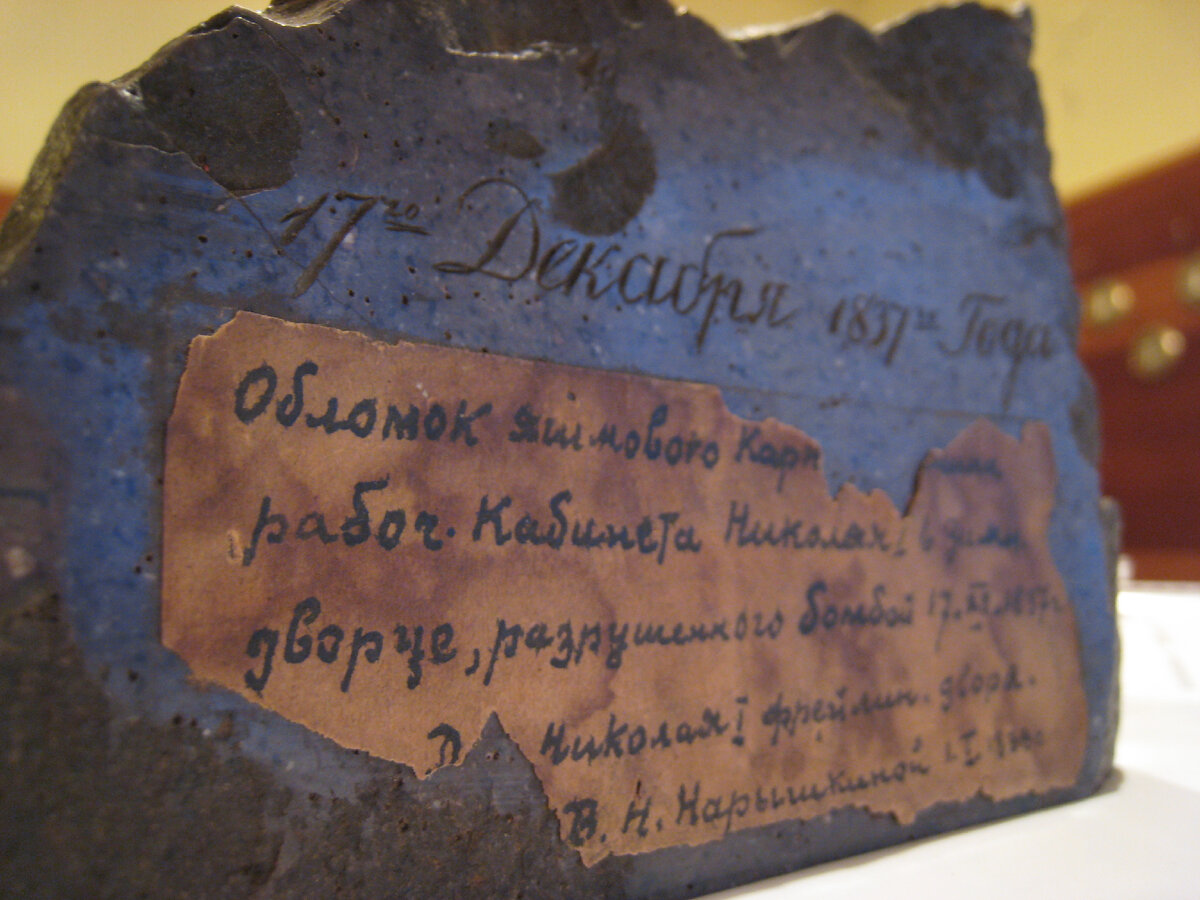 17го Декабря 1837го Года
Обломок яшмового Карн
рабоч. Кабинета Николая I в зимн
дворце, разрушенного бомбой 17.XII.1837г.
Николая I фрейлин. двора.
В. Н. Нарышкиной